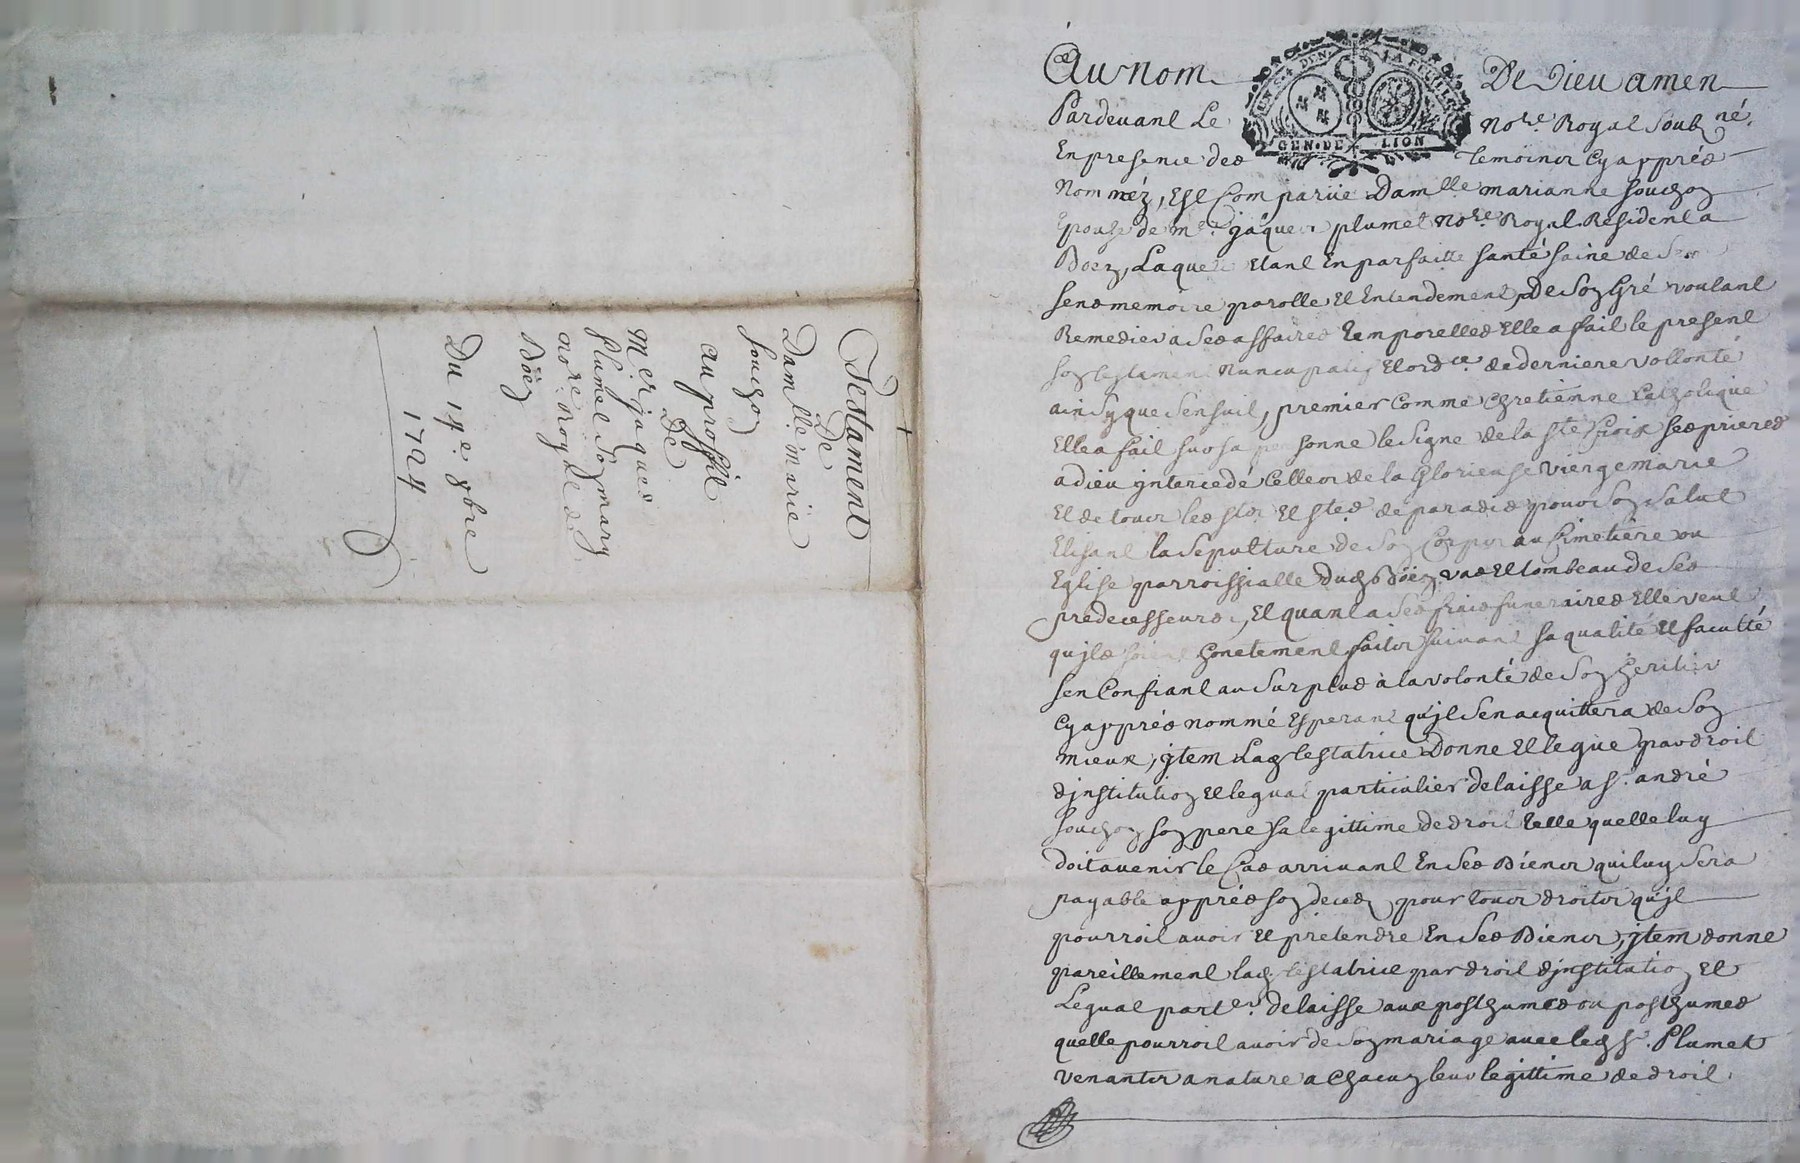 Testament
De
Damlle marie
souchon
au proffit
De
Mer jaques
plumet son mary
nore Royal de
Böen
Du 14e 9bre
1724
Au nom De Dieu amen
GEN. DE LION
Pardevant Le Nore Royal soubné
En presence des temoins cy apprés
Nommez, Est Comparüe Damlle marianne souchon
Epouse de me jâques plumet Nore Royal Resident a
Böen, Laquelle Etant En parfaitte santé saine de ses
sens memoire parolle Et Entendement, De son Gré voulant
Remedier a ses affaires temporelles Elle a fait le present
son testament nuncupatif Et ordce de derniere vollonté
ainsy que s'ensuit, premier comme chretienne Catholique
Elle a fait sur sa personne le signe de la ste Croix ses prieres
a dieu jntercedé celles de la Glorieuse vierge marie
Et de tous les sts Et stes de paradis pour son salut
Elisant la sepulture de son Corps au Cimetiere ou
Eglise parroissialle dud Böen vas Et tombeau de ses
predecesseurs, Et quant a ses frais funeraires Elle veut
qu'jls soient honetement faits suivant sa qualité Et faculté
s'en Confiant au surplus à la volonté de son heritier
cy apprés nommé Esperant qu'jl s'en acquittera de son
mieux, jtem Lad testatrice Donne Et legue par droit
d'jnstitution Et legual particulier delaisse a sr andré
souchon son pere sa legittime de droit telle quelle luy
doit avenir le Cas arrivant En ses Biens qui luy sera
payable apprés son deced, pour tous droits qu'jl
pourroit avoir Et pretendre En ses Biens, jtem donne
pareillement lad testatrice par droit d'jnstitution Et
Legual parter delaisse aux posthumes ou posthumes
quelle pourroit avoir de son mariage avec led sr. Plumet
venants a nature a chacun leur legittime de droit